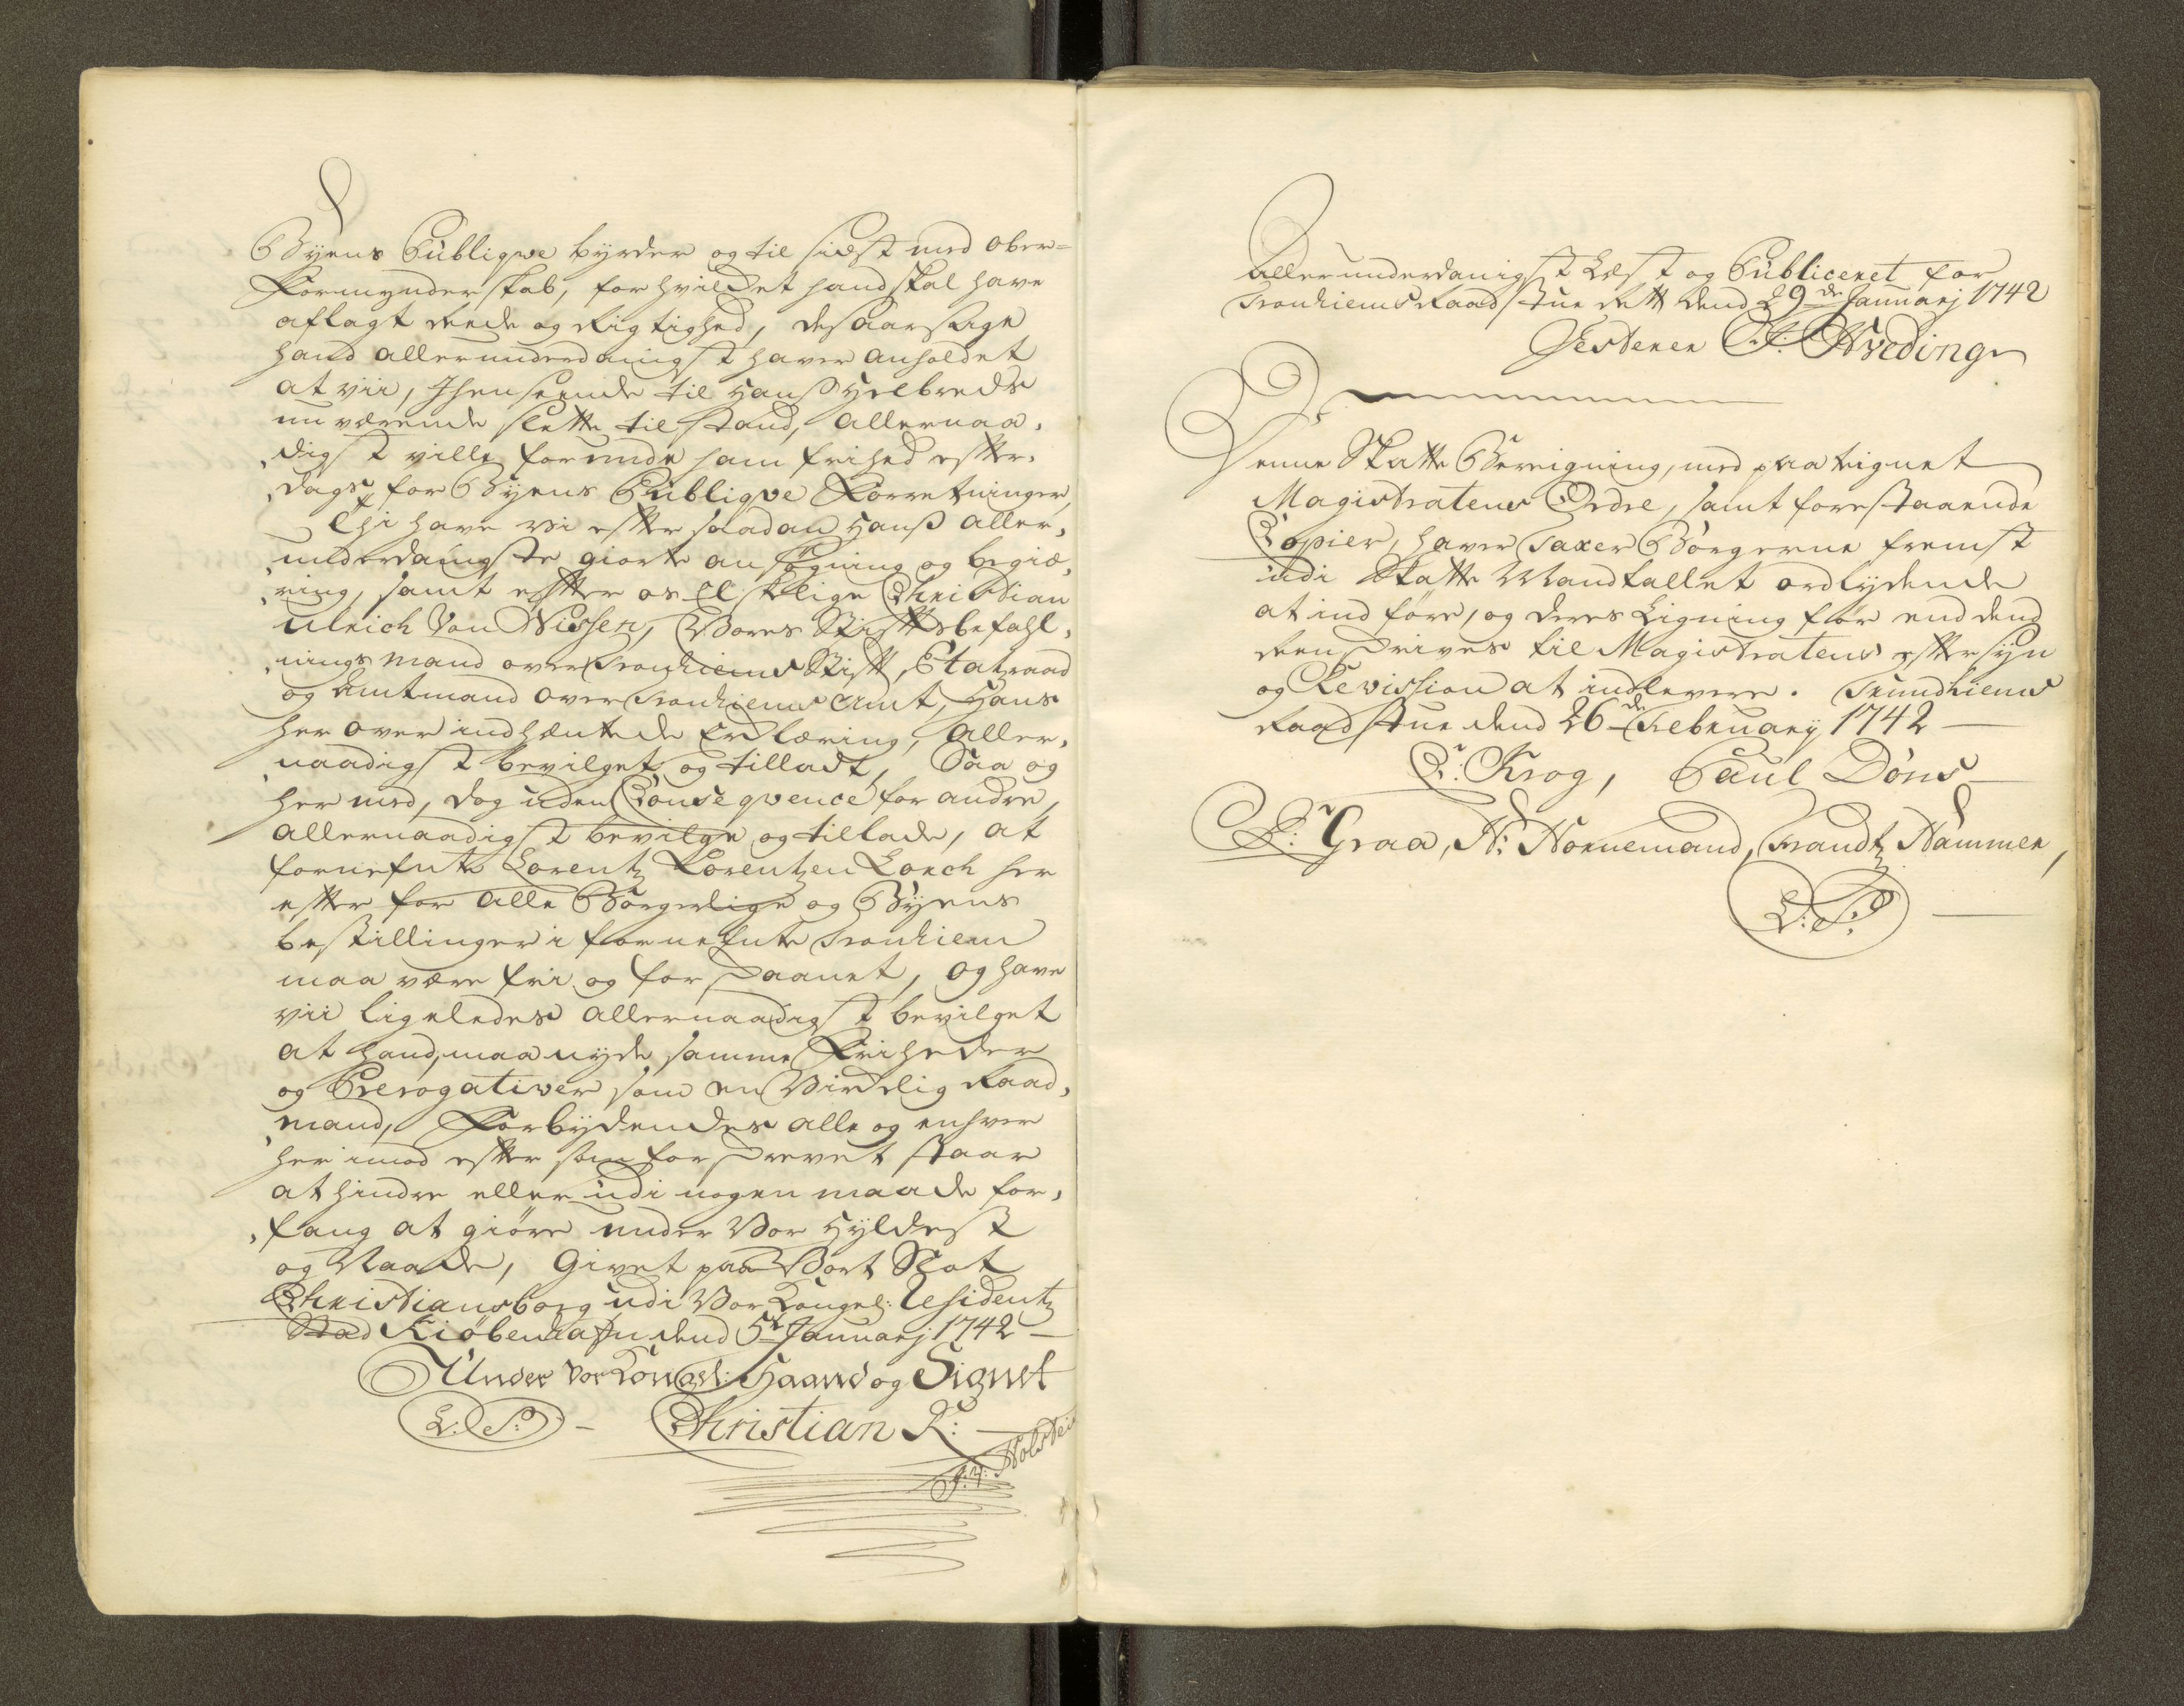 Byens Publiqve byrder og til sidst med Ober=
Formynderskab, for hvilcket hand skal have
aflagt Reede og Rigtighed, desaarsage
hand allerunderdanigst haver anholdet
at vii, J henseende til Hans Helbreds
nu værende slette tilstand, allernaa,
,digst ville forunde ham frihed effter,
,dags for Byens Publiqve Forretninger,
Thi have vi effter saadan Hans aller,
,underdanigste giorte ansøgning og begiæ,
,ring, samt effter os Elskelige Christian
Ulrich Von Nissen, Vores Stifftsbefahl,
,nings mand over Tronhiems Stifft, Etatzraad
og Amtmand over Tronhiems Amt, Hans
her over indhæntede Erklæring, Aller,
,naadigst bevilget og tilladt, Saa og
her med, dog uden Conseqvence for andre,
allernaadigst bevilge og tillade, at
fornefnte Lorentz Lorentzen Lorch her
effter for alle Borgerlige og Byens
bestillinger i fornefnte Tronhiem
maa være fri og forskaanet, og have
vii ligeledes allernaadigst bevilget
at hand maa nyde samme Friheder
og Prerogativer som en Virkelig Raad,
,mand, Forbydendes alle og enhver
her imod effter som forskrevet staar
at hindre eller udi nogen maade for,
,fang at giøre under Vor Hyldest
og Naade, Givet paa Vort Slot
Christiansborg udi Vor Kongel: Residentz
Stad Kiøbenhafn dend 5t Januarj 1742
Under Vor Kongel: Haand og Signet
L: S: - Christian R:
J: L: Holstein
Allerunderdanigst Læst og Publiceret for
Tronhiems Raadstue Rett dend 29de Januarj 1742
Testerer A: Hveding
Denne Skatte Bereigning, med paategnet
Magistratens Ordre, samt forestaaende
Copier, haver Taxer Borgerne fremst
udi Skatte Mandtallet ordlydende
at ind føre, og deres Ligning før end dend
reenskrives til Magistratens effter syn
og Revission at indlevere. Trundhiems
Raadstue dend 26de Februarij 1742
C: Krog, Paul Döns
P: Graa, H: Hornemand, Frandtz Hammer,
L: S: